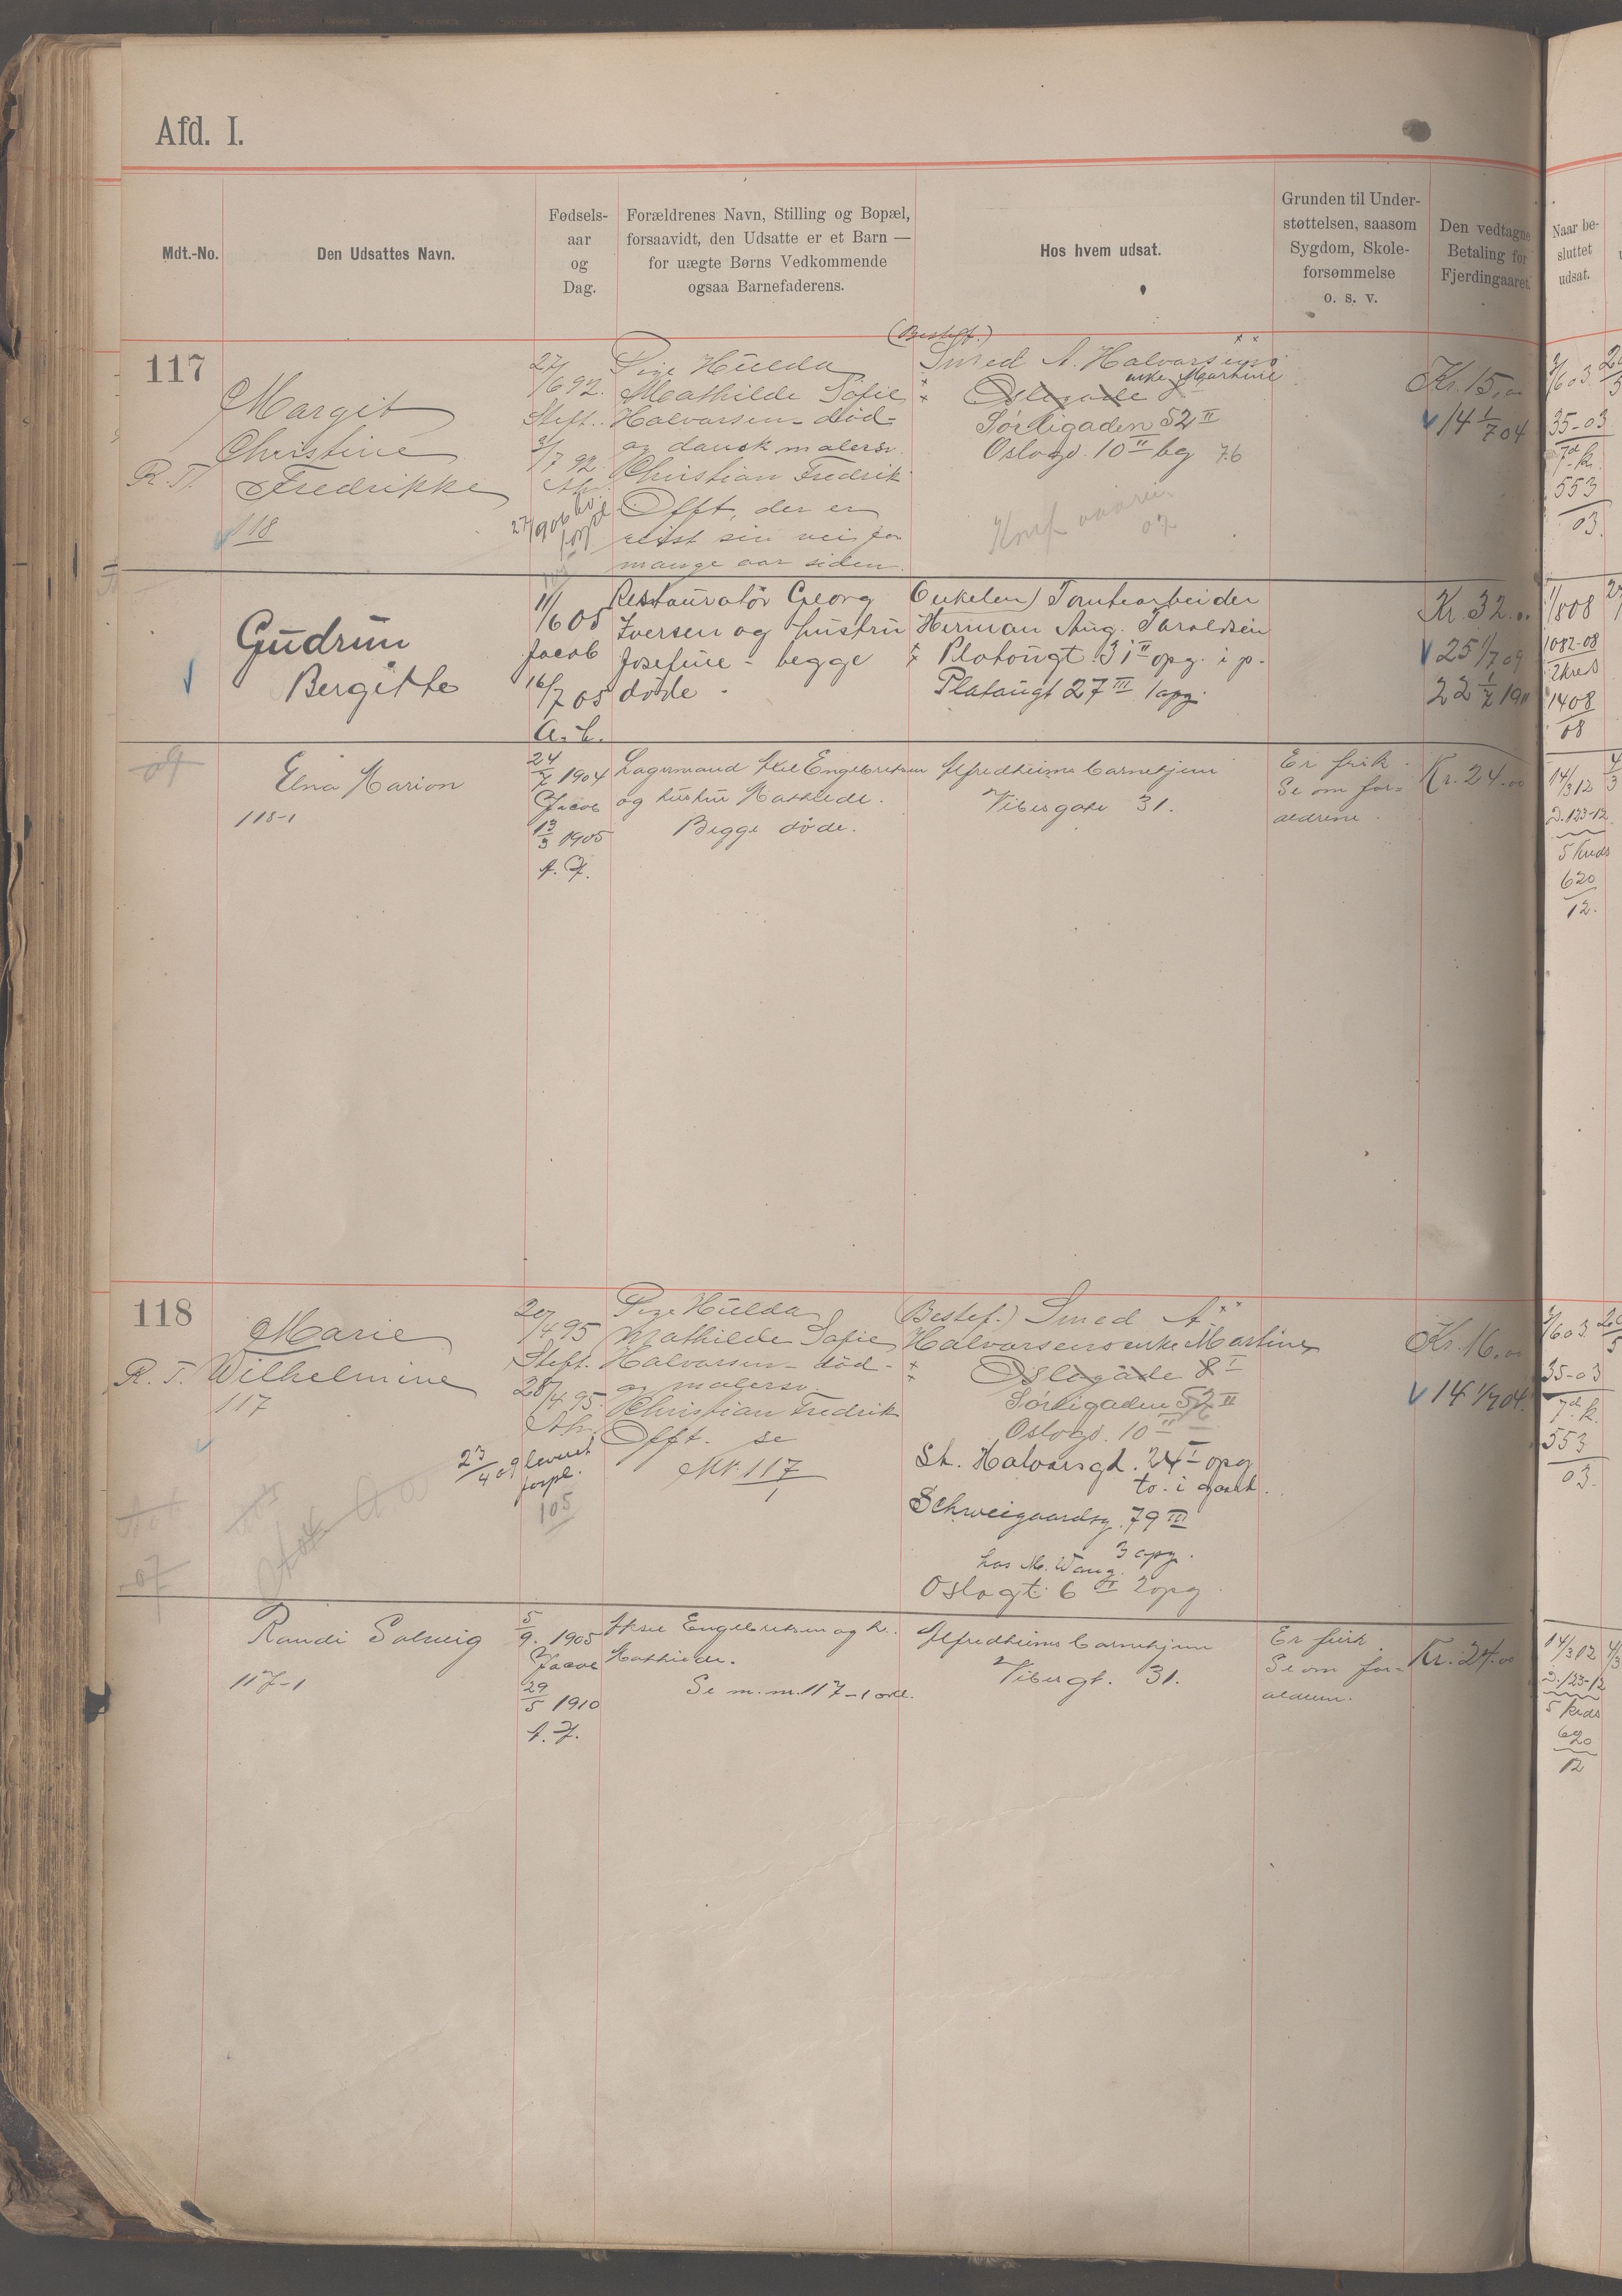 Afd. I.
Mdt.-No.
Den Udsattes Navn.
Fødsels-
aar
og
Dag.
Forældrenes Navn, Stilling og Bopæl,
forsaavidt, den Udsatte er et Barn —
for uægte Børns Vedkommende
ogsaa Barnefaderens.
Hos hvem udsat.
Grunden til Under-
støttelsen, saasom
Sygdom, Skole-
forsømmelse
o. s. v.
Den vedtagne
Betaling for
Fjerdingaaret.
Naar be-
sluttet
udsat.
117
Margit
Christine
R. T. Fredrikke
118
27/6 92.
Steft.
3/7 92.
Pige Hulda
Mathilde Sofie
Halvorsen - død -
og dansk malersv.
Christian Fredrik
Offt, der er
reist sin vei for
mange aar siden.
(Bestef.)
Smed A. Halvorsens
enke Martine
Oslogade
Sørligaden 52 II
Oslogd. 10 II bg 76
Konf. vaaren
07
Kr. 15,00
14 1/7 04
35-03
7de kr.
553
03.
Gudrun
Bergitte
11/6 05
Jacob
16/7 05
Restauratør Georg
Iversen og hustru
Josefine - begge
døde -
Onkelen) Tomtearbeider
Herman Aug. Haroldsen
Platougt 31 II opg. i p.
Platougt 27 III 1 opg.
Kr. 32.00
25 1/7 09
22 1/7 1911
1/8 08
1082-08
2kred
1408
08
09
Elna Marion
118-1
24/7 1904
Jacob
13/3 1905
Lagermand Aksel Engebretsen
og hustru Mathilde.
Begge døde.
Alfredheims barnehjem
Vibesgate 31.
Er frisk.
Se om for-
ældrene.
Kr. 24.00
14/3 12
D. 123-12
5 Kreds
620
12.
118
Marie
R. T. Wilhelmine
117
20/4 95
Steft.
28/4 95.
23/4 09 levert
forpl.
105
Pige Hulda
Mathilde Sofie
Halvorsen - død -
og malersv.
Christian Fredrik
Offt. se
Nr. 117
1
Bestef.) Smed A.
Halvorsens enke Martine
Oslogade 8 I
Sørligaden 52 II
Oslogd. 10 II
St. Halvorsgd. 24 I opg
to. i gaard.
Schweigaardsg. 79 III
3 opg.
hos M. Wang.
Oslogt. 6 II 2 opg
Kr. 16,00
14 1/7 04.
35-03
7de k.
553
03.
07
Randi Solveig
117-1
5/9. 1905
Jacob
29/5 1910
Aksel Engebretsen og h.
Mathilde.
Se m. nr. 117-1 ovf.
Alfredheims barnehjem
Vibesgt. 31.
Er frisk.
Se om for-
ældrene.
Kr. 24.00
14/3 12
D. 123-12
5 Kreds
620
12